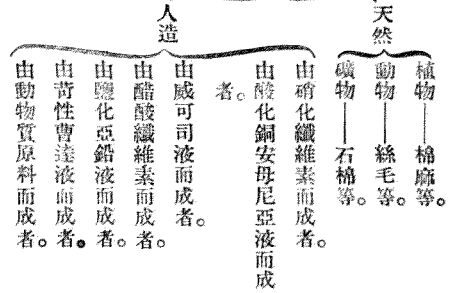 天然
植物——棉麻等。
動物——絲毛等。
礦物——石棉等。
人造
由硝化纖維素而成者。
由酸化銅安母尼亞液而成
者。
由威可司液而成者。
由醋酸纖維素而成者。
由鹽化亞鉛液而成者。
由苛性曹達液而成者。
由動物質原料而成者。